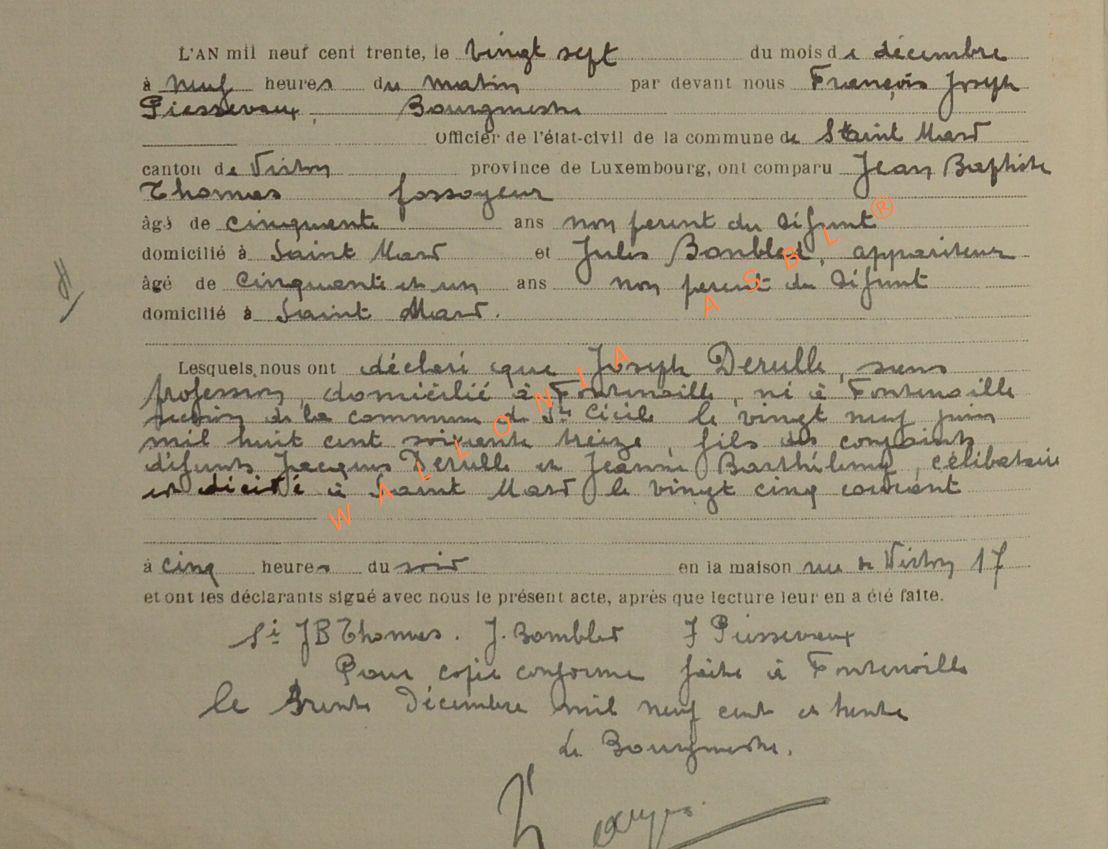 L'AN mil neuf cent trente, le vingt sept du mois de décembre
à neuf heures du matin par devant nous François Joseph
Piessevaux, Bourgmestre
Officier de l'état-civil de la commune de Saint Mard
canton de Virton province de Luxembourg, ont comparu Jean Baptiste
Thomas fossoyeur
âgé de cinquante ans non parent du défunt
domicilié à Saint Mard et Jules Bomblet, appariteur
âgé de cinquante et un ans non parent du défunt
domicilié à Saint Mard.
Lesquels nous ont déclaré que Joseph Derulle, sans
profession, domicilié à Fontenoille, né à Fontenoille
section de la commune de Ste Cécile le vingt neuf juin
mil huit cent soixante treize, fils des conjoints
défunts Jacques Derulle et Jeanne Barthélemy, célibataire
est décédé à Saint Mard le vingt cinq courant
à cinq heures du soir en la maison rue de Virton 17
et ont les déclarants signé avec nous le présent acte, après que lecture leur en a été faite.
Si JB Thomas. J. Bomblet F Piessevaux
Pour copie conforme faite à Fontenoille
le trente Décembre mil neuf cent et trente
Le Bourgmestre.
WALLONIA ASBL ®